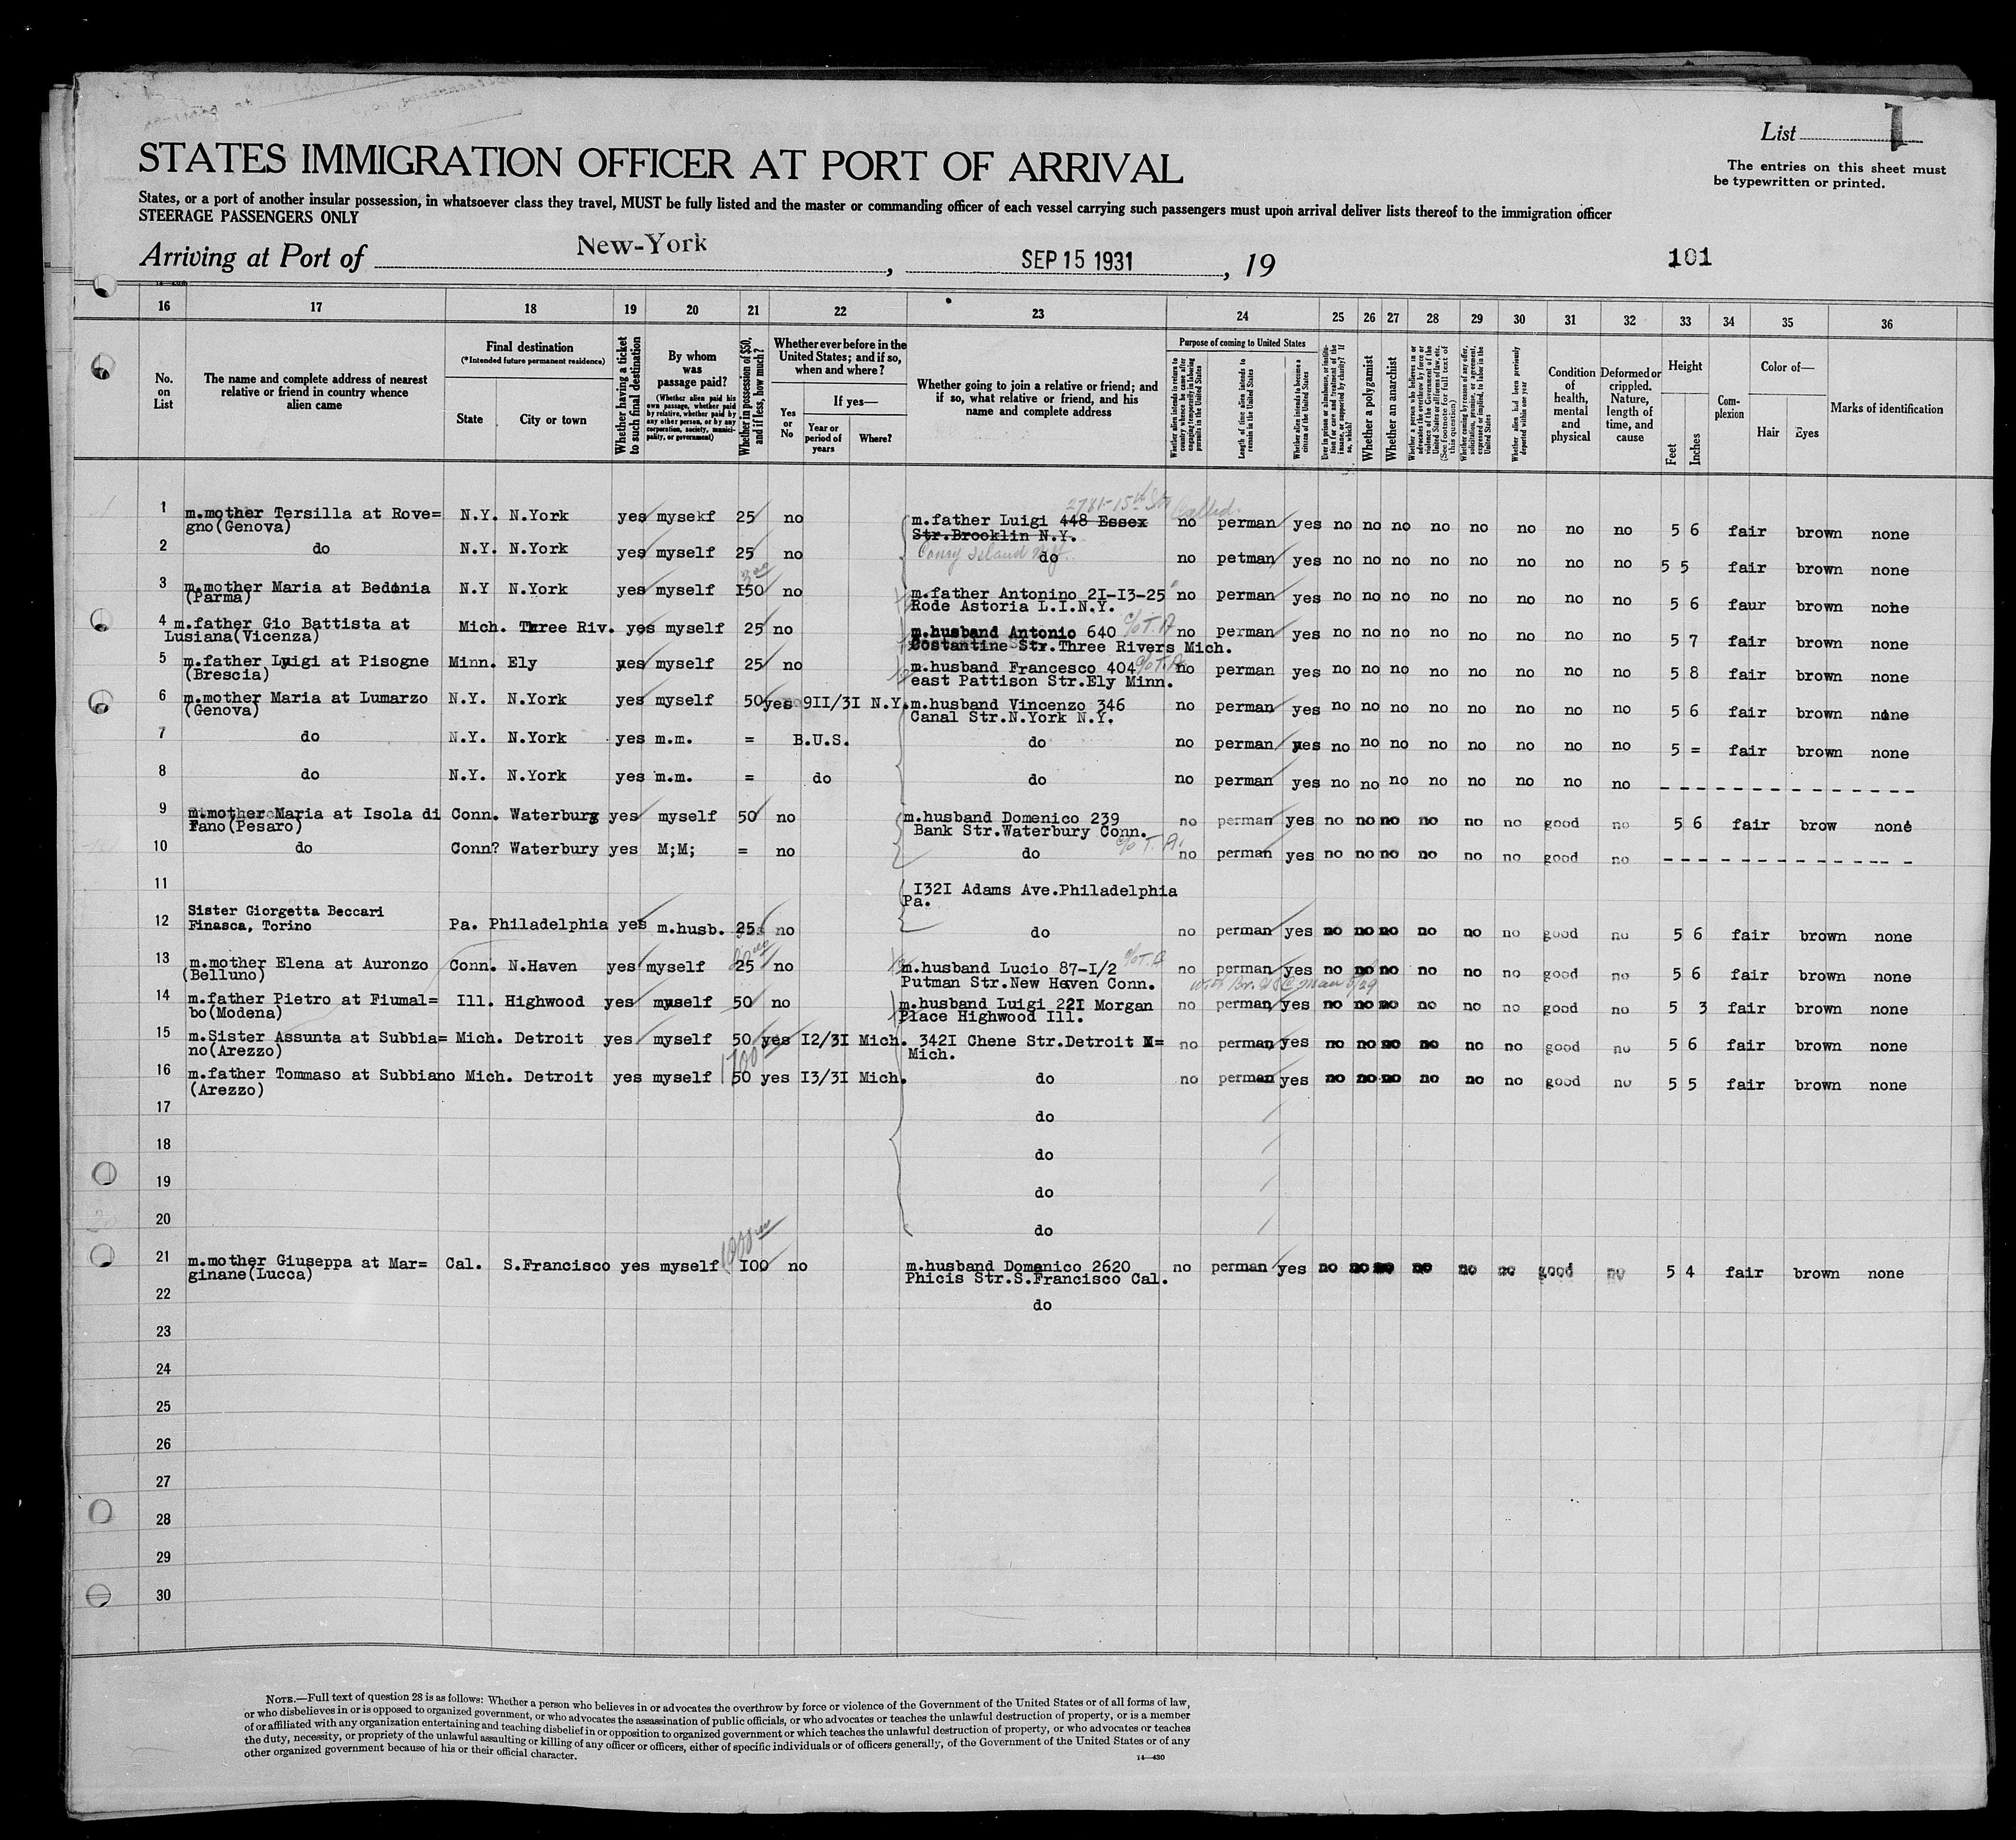 List I
The entries on this sheet must
be typewritten or printed.
STATES IMMIGRATION OFFICER AT PORT OF ARRIVAL
States, or a port of another insular possession, in whatsoever class they travel, MUST be fully listed and the master or commanding officer of each vessel carrying such passengers must upon arrival deliver lists thereof to the immigration officer
STEERAGE PASSENGERS ONLY
Arriving at Port of New-York, SEP 15 1931, 19
101
16 17 18 19 20 21 22 23 24 25 26 27 28 29 30 31 32 33 34 35 36
No. on List
The name and complete address of nearest relative or friend in country whence alien came
Final destination
(*Intended future permanent residence)
State
City or town
Whether having a ticket to such final destination
By whom was passage paid?
(Whether alien paid his own passage, whether paid by relative, whether paid by any other person, or by any corporation, society, municipality, or government)
Whether in possession of $50, and if less, how much?
Whether ever before in the United States; and if so, when and where?
Yes or No
If yes—
Year or period of years
Where?
Whether going to join a relative or friend; and if so, what relative or friend, and his name and complete address
Purpose of coming to United States
Whether alien intends to return to country whence he came after engaging temporarily in laboring pursuits in the United States
Length of time alien intends to remain in the United States
Whether alien intends to become a citizen of the United States
Ever in prison or almshouse, or institution for care and treatment of the insane, or supported by charity? If so, which?
Whether a polygamist
Whether an anarchist
Whether a person who believes in or advocates the overthrow by force or violence of the Government of the United States or all forms of law, etc. (See footnote for full text of this question)
Whether coming by reason of any offer, solicitation, promise, or agreement, expressed or implied, to labor in the United States
Whether alien had been previously deported within one year
Condition of health, mental and physical
Deformed or crippled. Nature, length of time, and cause
Height
Feet
Inches
Complexion
Color of—
Hair
Eyes
Marks of identification
2781-15th
1 m.mother Tersilla at Rove= N.Y. N.York yes mysekf 25 no m.father Luigi 448 Essex no perman yes no no no no no no no no 5 6 fair brown none
gno(Genova) Str.Brooklin N.Y.
Coney Island N.Y.
2 do N.Y. N.York yes myself 25 no do no petman yes no no no no no no no no 5 5 fair brown none
3 m.mother Maria at Bedonia N.Y N.York yes myself I50 no m.father Antonino 2I-I3-25 no perman yes no no no no no no no no 5 6 faur brown none
(Parma) Rode Astoria L.I.N.Y.
4 m.father Gio Battista at Mich. Three Riv. yes myself 25 no m.husband Antonio 640 c/o T.A no perman yes no no no no no no no no 5 7 fair brown none
Lusiana(Vicenza) Costantine Str.Three Rivers Mich.
5 m.father Luigi at Pisogne Minn. Ely yes myself 25 no m.husband Francesco 404 c/o T.A. no perman yes no no no no no no no no 5 8 fair brown none
(Brescia) east Pattison Str.Ely Minn.
6 m.mother Maria at Lumarzo N.Y. N.York yes myself 50 yes 9II/3I N.Y. m.husband Vincenzo 346 no perman yes no no no no no no no no 5 6 fair brown none
(Genova) Canal Str.N.York N.Y.
7 do N.Y. N.York yes m.m. = B.U.S. do no perman yes no no no no no no no no 5 = fair brown none
8 do N.Y. N.York yes m.m. = do do no perman yes no no no no no no no no - - - - - - - - - - - - - - - - -
9 m.mother Maria at Isola di Conn. Waterburg yes myself 50 no m.husband Domenico 239 no perman yes no no no no no no good no 5 6 fair brow none
Fano(Pesaro) Bank Str.Waterbury Conn.
c/o T.A.
10 do Conn? Waterbury yes M;M; = no do no perman yes no no no no no no good no - - - - - - - - - - - - - - - - -
11 I32I Adams Ave.Philadelphia
Pa.
Sister Giorgetta Beccari
12 Finasca, Torino Pa. Philadelphia yes m.husb. 25 no do no perman yes no no no no no no good no 5 6 fair brown none
13 m.mother Elena at Auronzo Conn. N.Haven yes myself 25 no m.husband Lucio 87-I/2 c/o T.A no perman yes no no no no no no good no 5 6 fair brown none
(Belluno) Putman Str.New Haven Conn.
14 m.father Pietro at Fiumal= Ill. Highwood yes myself 50 no m.husband Luigi 22I Morgan no perman yes no no no no no no good no 5 3 fair brown none
bo(Modena) Place Highwood Ill.
15 m.Sister Assunta at Subbia= Mich. Detroit yes myself 50 yes I2/3I Mich. 342I Chene Str.Detroit M= no perman yes no no no no no no good no 5 6 fair brown none
no(Arezzo) Mich.
16 m.father Tommaso at Subbiano Mich. Detroit yes myself 50 yes I3/3I Mich. do no perman yes no no no no no no good no 5 5 fair brown none
(Arezzo)
17 do
18 do
19 do
20 do
21 m.mother Giuseppa at Mar= Cal. S.Francisco yes myself I00 no m.husband Domenico 2620 no perman yes no no no no no no good no 5 4 fair brown none
ginane(Lucca) Phicis Str.S.Francisco Cal.
22 do
23
24
25
26
27
28
29
30
NOTE.—Full text of question 28 is as follows: Whether a person who believes in or advocates the overthrow by force or violence of the Government of the United States or of all forms of law,
or who disbelieves in or is opposed to organized government, or who advocates the assassination of public officials, or who advocates or teaches the unlawful destruction of property, or is a member
of or affiliated with any organization entertaining and teaching disbelief in or opposition to organized government or which teaches the unlawful destruction of property, or who advocates or teaches
the duty, necessity, or propriety of the unlawful assaulting or killing of any officer or officers, either of specific individuals or of officers generally, of the Government of the United States or of any
other organized government because of his or their official character.
14—430